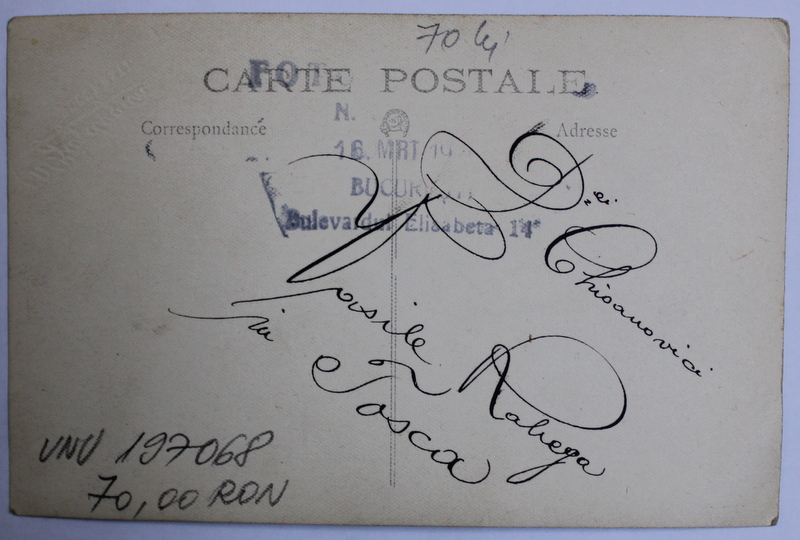 70 lei
CARTE POSTALE
FOT
Correspondance
Adresse
N.
16. MRT
BUCUR
Bulevardul Elisabeta 14ª
D-ei Chisanovici
Vasile Rahega
in Tosca
VNV 197068
70,00 RON